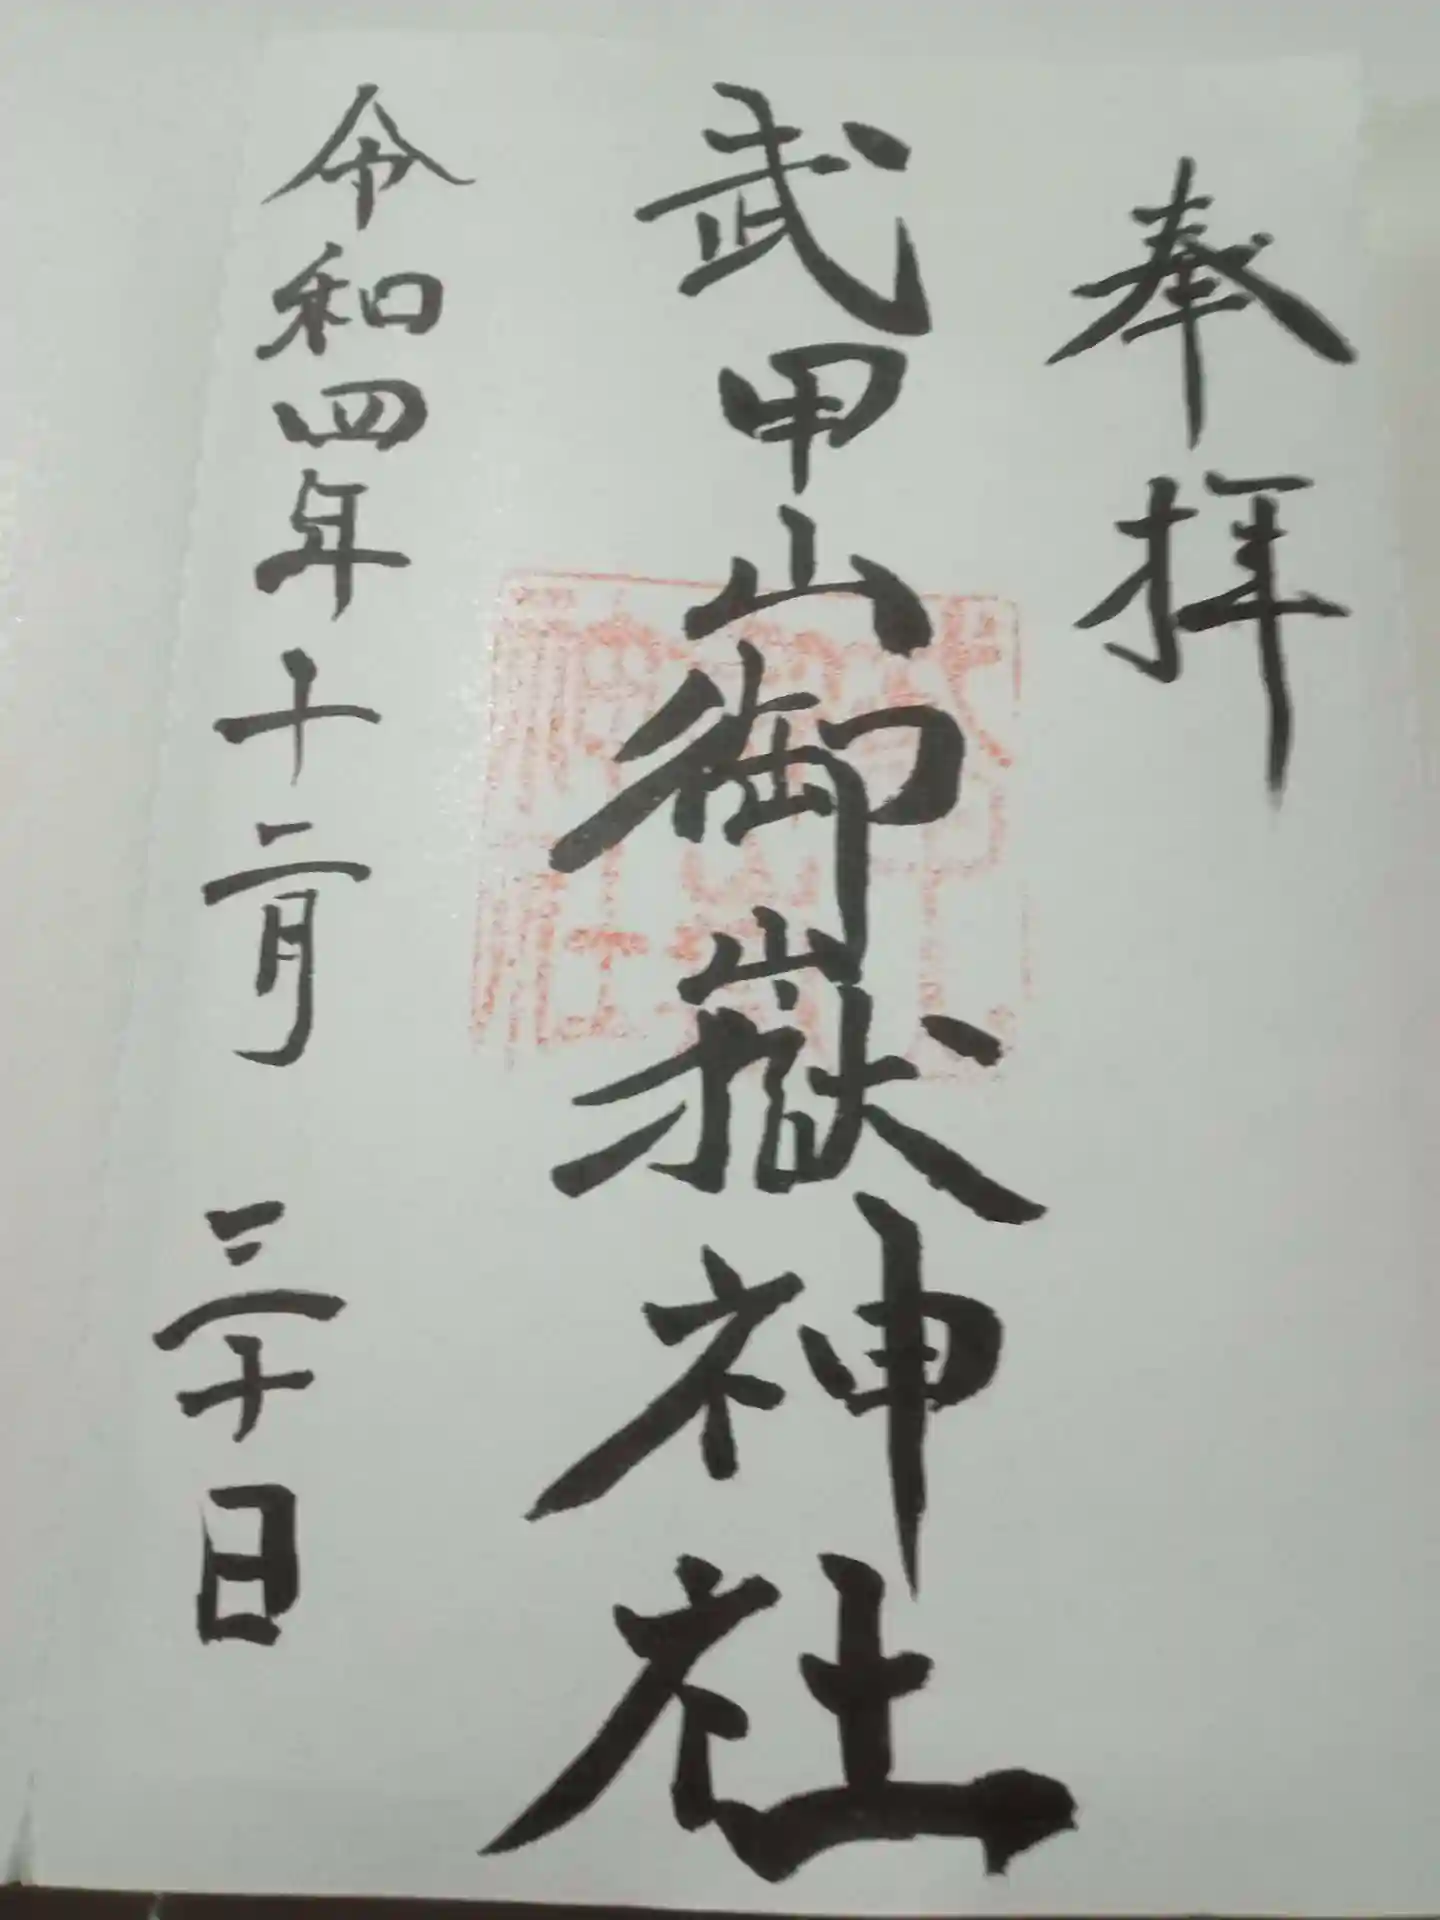 奉拝
武甲山御嶽神社
令和四年十二月三十日